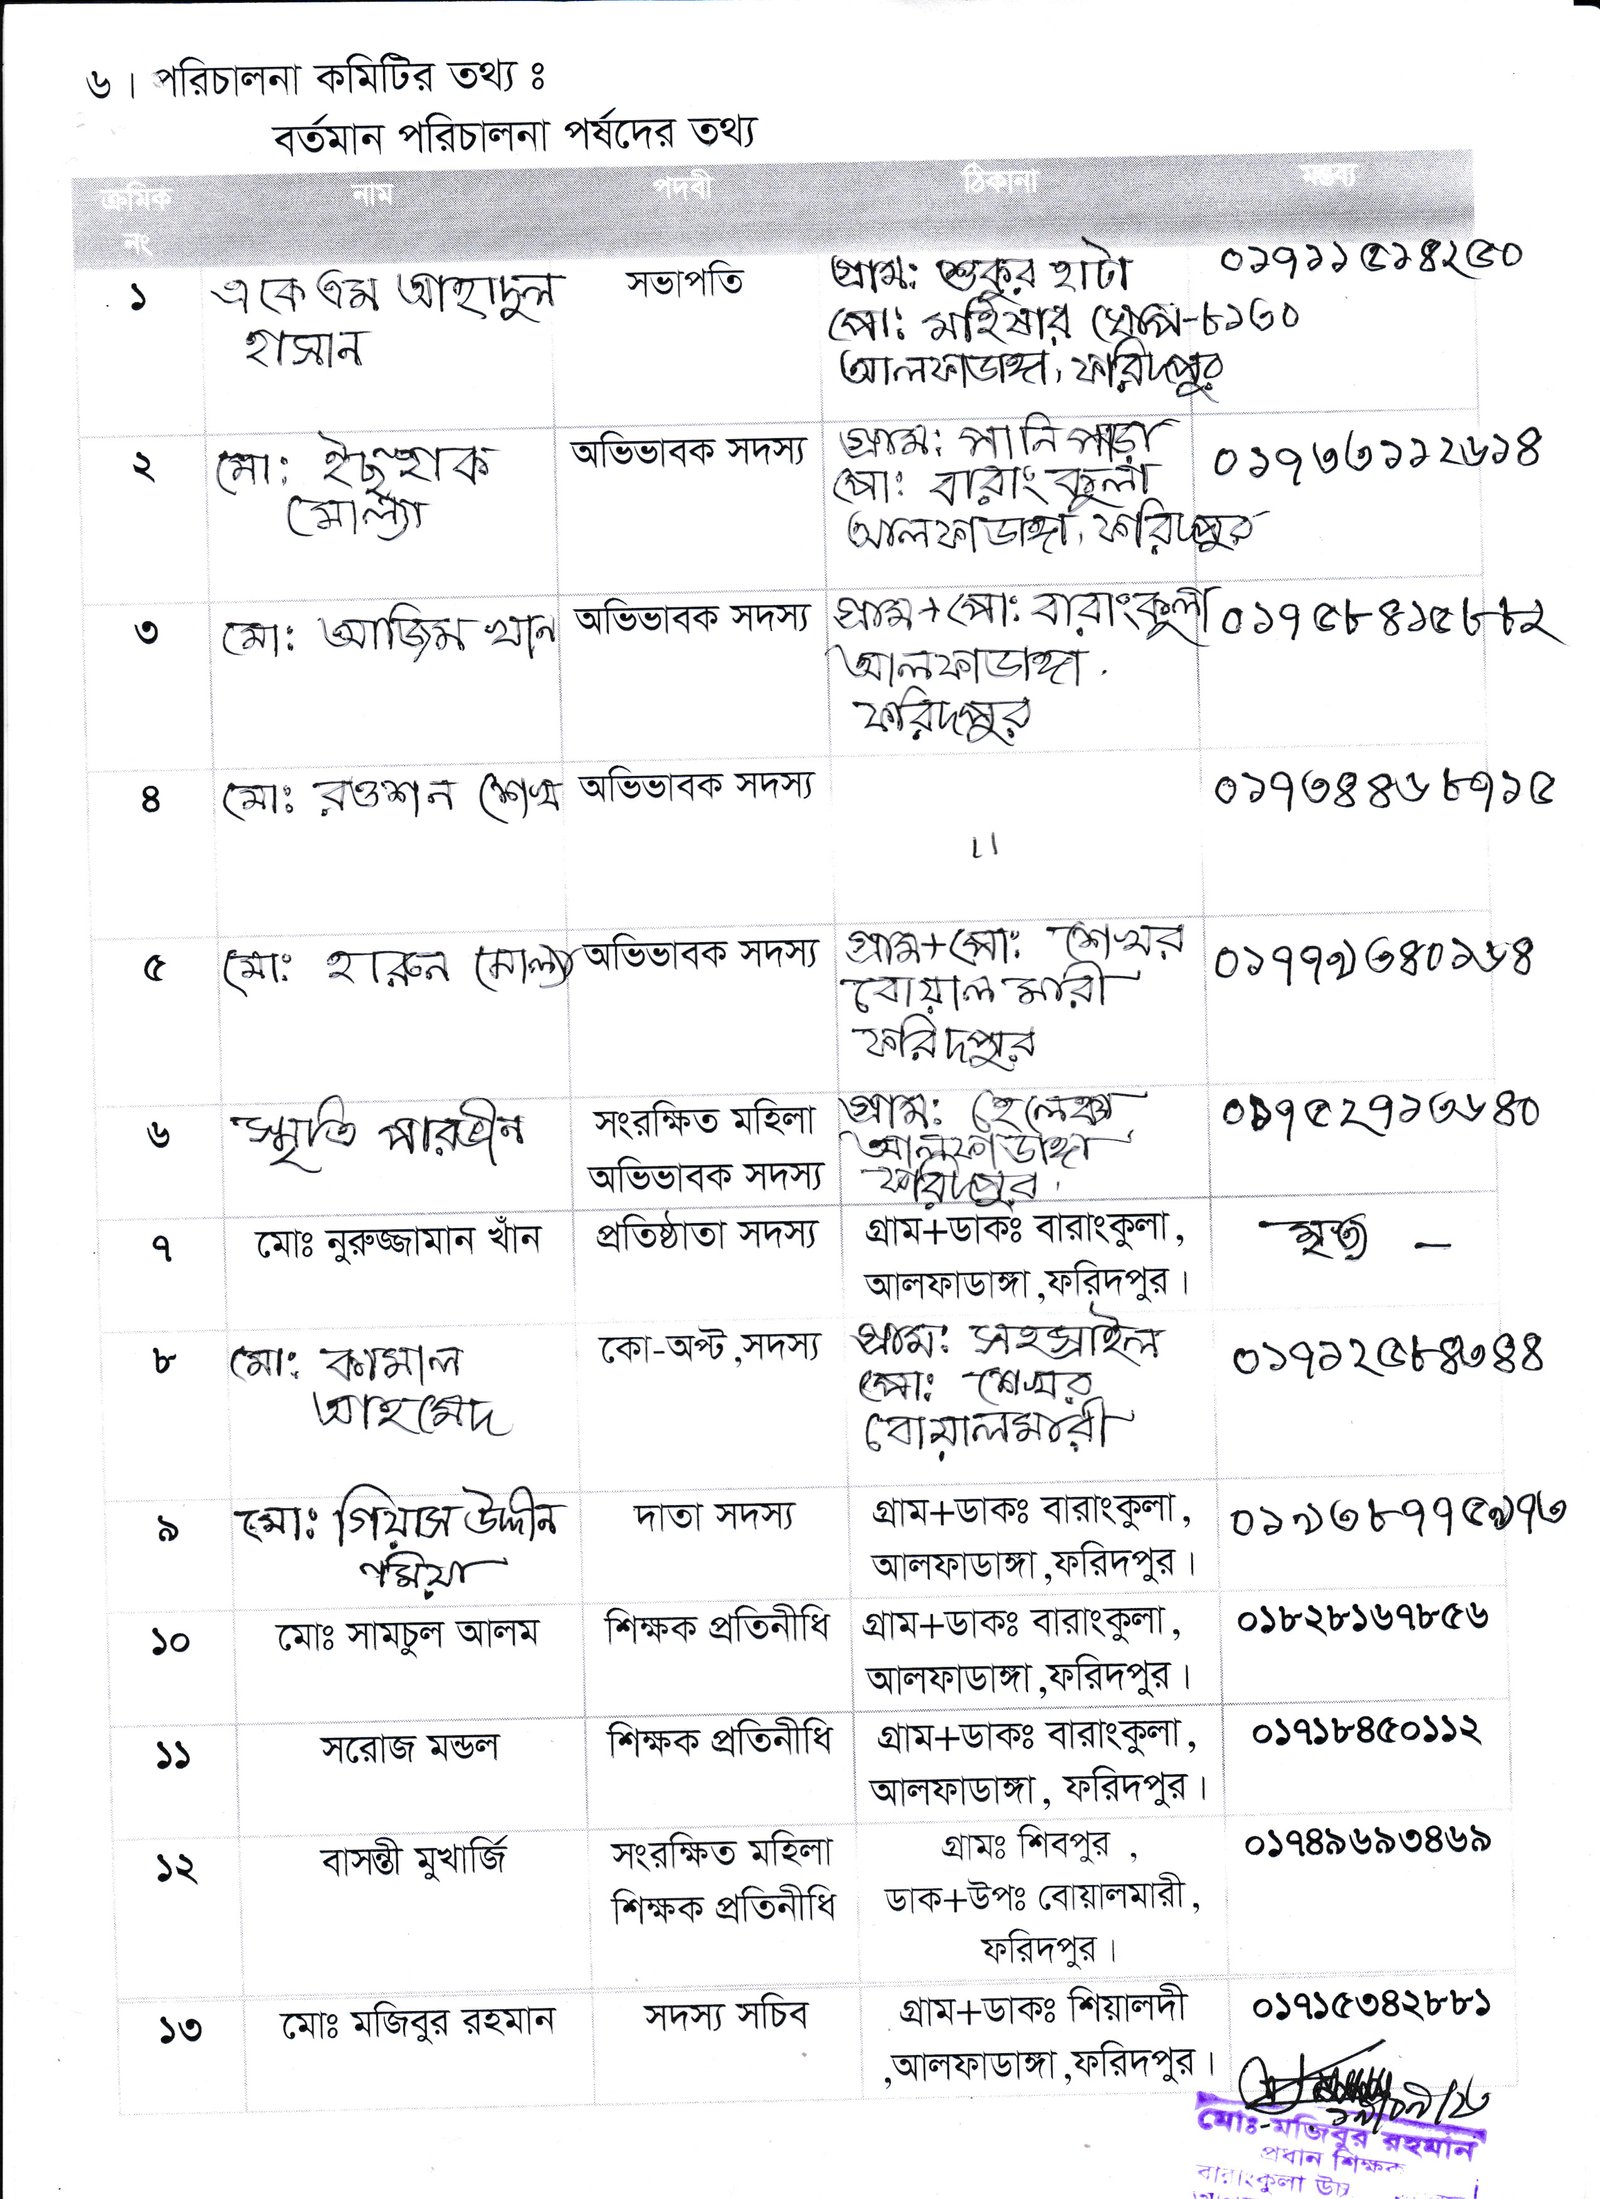 ৬। পরিচালনা কমিটির তথ্য ঃ
বর্তমান পরিচালনা পর্ষদের তথ্য
ক্রমিক নং নাম পদবী ঠিকানা মন্তব্য
১ একেএম আহাদুল হাসান সভাপতি গ্রাম: শুকুর হাটা ০১৭১১৫১৪২৫০
পো: মহিষার ঘোপ-৮১৩০
আলফাডাঙ্গা, ফরিদপুর
২ মো: ইছহাক মোল্যা অভিভাবক সদস্য গ্রাম: পানি পাড়া ০১৭৩৩১১২৬১৪
পো: বারাংকুলা
আলফাডাঙ্গা, ফরিদপুর
৩ মো: আজিম খান অভিভাবক সদস্য গ্রাম+পো: বারাংকুলা ০১৭৫৮৪১৫৮৮২
আলফাডাঙ্গা.
ফরিদপুর
৪ মো: রওশন শেখ অভিভাবক সদস্য ০১৭৩৪৪৬৮৭১৫
"
৫ মো: হারুন মোল্যা অভিভাবক সদস্য গ্রাম+পো: শেখর ০১৭৭৯৩৪০১৬৪
বোয়ালমারী
ফরিদপুর
৬ স্মৃতি পারভীন সংরক্ষিত মহিলা গ্রাম: হেলেঞ্চা ০১৭৫২৭১৩৬৪০
অভিভাবক সদস্য আলফাডাঙ্গা
ফরিদপুর।
৭ মোঃ নুরুজ্জামান খাঁন প্রতিষ্ঠাতা সদস্য গ্রাম+ডাকঃ বারাংকুলা, মৃত –
আলফাডাঙ্গা,ফরিদপুর।
৮ মো: কামাল আহমেদ কো-অপ্ট,সদস্য গ্রাম: সহস্রাইল ০১৭১২৫৮৪৩৪৪
পো: শেখর
বোয়ালমারী
৯ মো: গিয়াস উদ্দীন মিয়া দাতা সদস্য গ্রাম+ডাকঃ বারাংকুলা, ০১৯৩৮৭৭৫৯৭৩
আলফাডাঙ্গা,ফরিদপুর।
১০ মোঃ সামচুল আলম শিক্ষক প্রতিনীধি গ্রাম+ডাকঃ বারাংকুলা, ০১৮২৮১৬৭৮৫৬
আলফাডাঙ্গা,ফরিদপুর।
১১ সরোজ মন্ডল শিক্ষক প্রতিনীধি গ্রাম+ডাকঃ বারাংকুলা, ০১৭১৮৪৫০১১২
আলফাডাঙ্গা, ফরিদপুর।
১২ বাসন্তী মুখার্জি সংরক্ষিত মহিলা গ্রামঃ শিবপুর , ০১৭৪৯৬৯৩৪৬৯
শিক্ষক প্রতিনীধি ডাক+উপঃ বোয়ালমারী,
ফরিদপুর।
১৩ মোঃ মজিবুর রহমান সদস্য সচিব গ্রাম+ডাকঃ শিয়ালদী ০১৭১৫৩৪২৮৮১
,আলফাডাঙ্গা,ফরিদপুর।
মোঃ মজিবুর রহমান
প্রধান শিক্ষক
বারাংকুলা উচ্চ